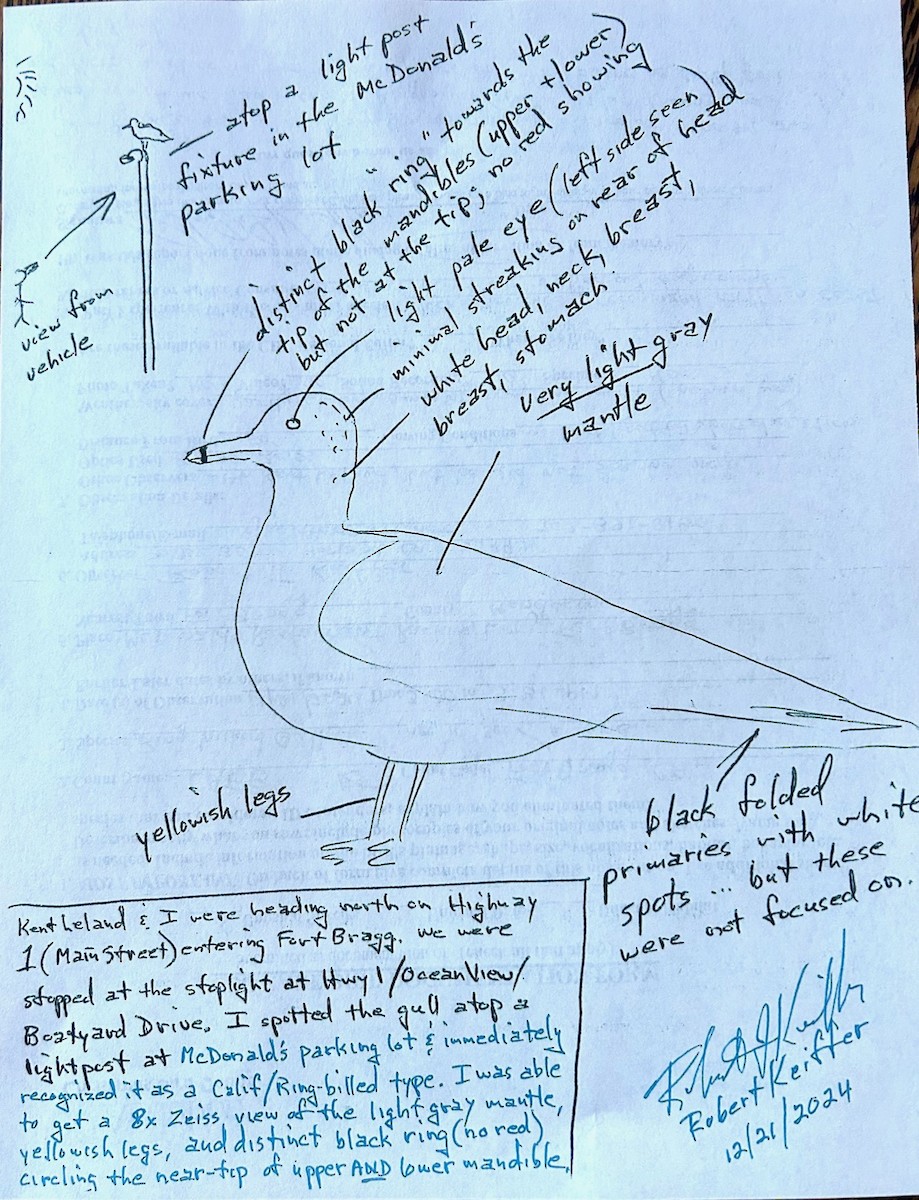 atop a light post
fixture in the McDonald's
parking lot
view from
vehicle
distinct black "ring" towards the
tip of the mandibles (upper + lower)
but not at the tip; no red showing
light pale eye (left side seen)
minimal streaking on rear of head
white head, neck, breast,
breast, stomach
very light gray
mantle
yellowish legs
black folded
primaries with white
spots ... but these
were not focused on.
Kent Leland & I were heading north on Highway
1 (Main Street) entering Fort Bragg. We were
stopped at the stoplight at Hwy 1/Ocean View/
Boatyard Drive. I spotted the gull atop a
lightpost at McDonald's parking lot & immediately
recognized it as a Calif/Ring-billed type. I was able
to get a 8x Zeiss view of the light gray mantle,
yellowish legs, and distinct black ring (no red)
circling the near-tip of upper AND lower mandible.
Robert J Keiffer
Robert Keiffer
12/21/2024